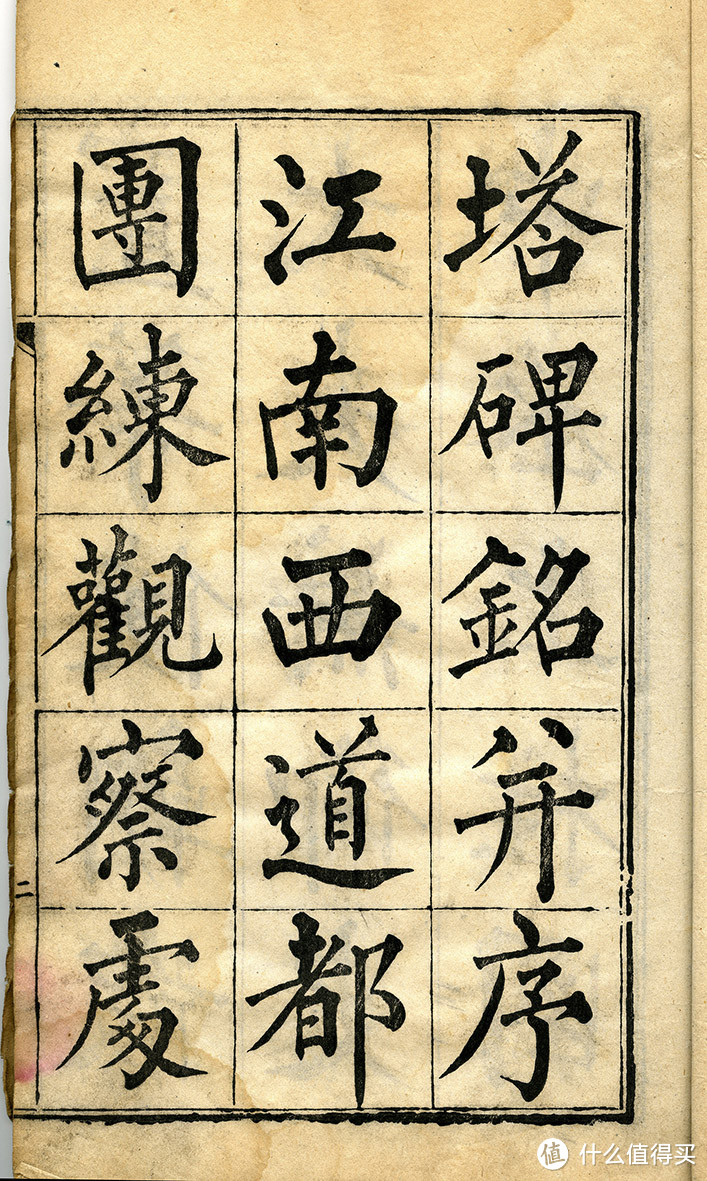 塔碑銘并序
江南西道都
團練觀察處
二
值 什么值得买